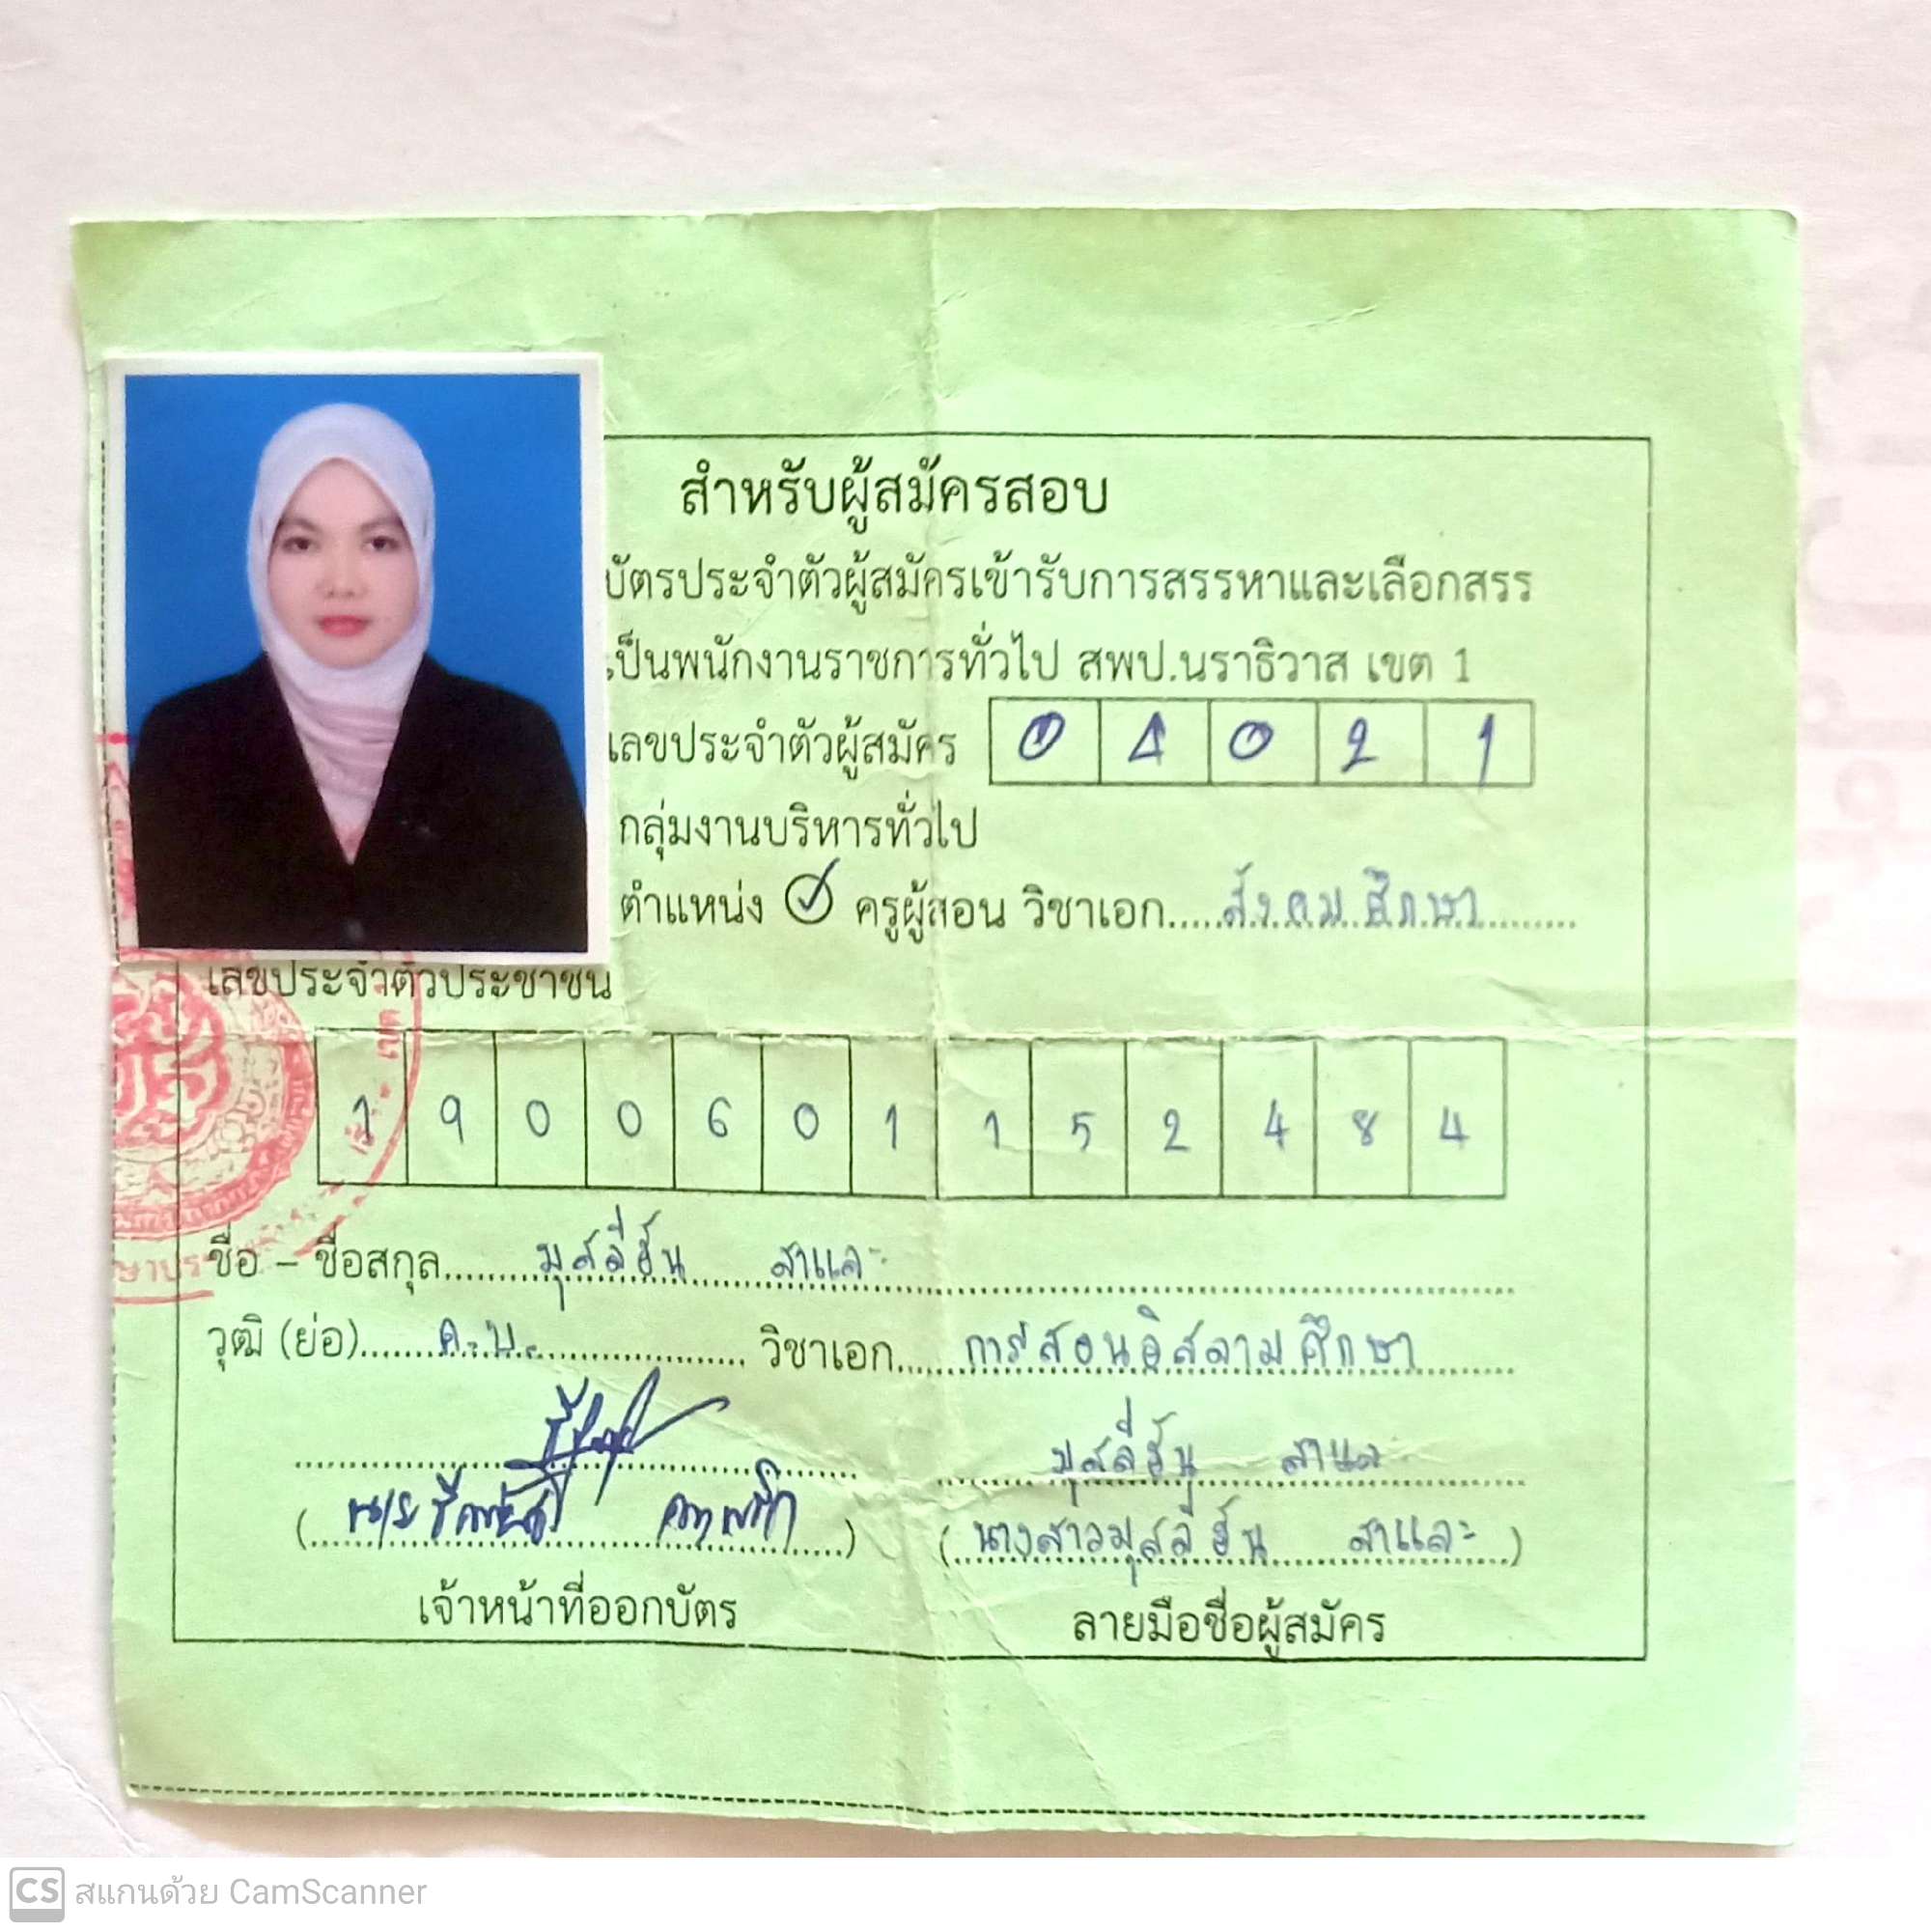 สำหรับผู้สมัครสอบ
บัตรประจำตัวผู้สมัครเข้ารับการสรรหาและเลือกสรร
เป็นพนักงานราชการทั่วไป สพป.นราธิวาส เขต 1
เลขประจำตัวผู้สมัคร 0 4 0 2 1
กลุ่มงานบริหารทั่วไป
ตำแหน่ง ครูผู้สอน วิชาเอก.....สังคมศึกษา..........
เลขประจำตัวประชาชน
1 9 0 0 6 0 1 1 5 2 4 8 4
ชื่อ – ชื่อสกุล..........มุสลีฮัน สาและ..........
วุฒิ (ย่อ)........ค.บ........... วิชาเอก.....การสอนอิสลามศึกษา..........
มุสลีฮัน สาและ
(นางสาวมุสลีฮัน สาและ)
เจ้าหน้าที่ออกบัตร ลายมือชื่อผู้สมัคร
CS สแกนด้วย CamScanner